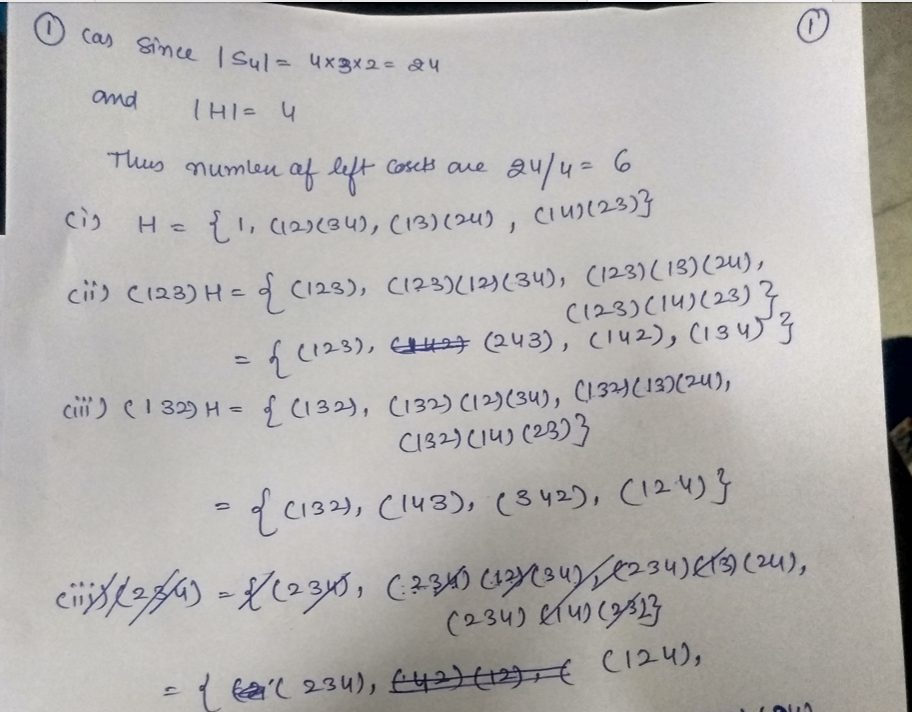 ① (a) Since |S4| = 4×3×2 = 24
①
and |H| = 4
Thus number of left cosets are 24/4 = 6
(i) H = { 1, (12)(34), (13)(24), (14)(23)}
(ii) (123) H = { (123), (123)(12)(34), (123)(13)(24),
(123)(14)(23) }
= { (123), (142) (243), (142), (134) }
(iii) (132) H = { (132), (132)(12)(34), (132)(13)(24),
(132)(14)(23)}
= { (132), (143), (342), (124) }
(iii) (234) = { (234), (234)(12)(34), (234)(13)(24),
(234)(14)(23)}
= { (234), (42)(12), ( (124),